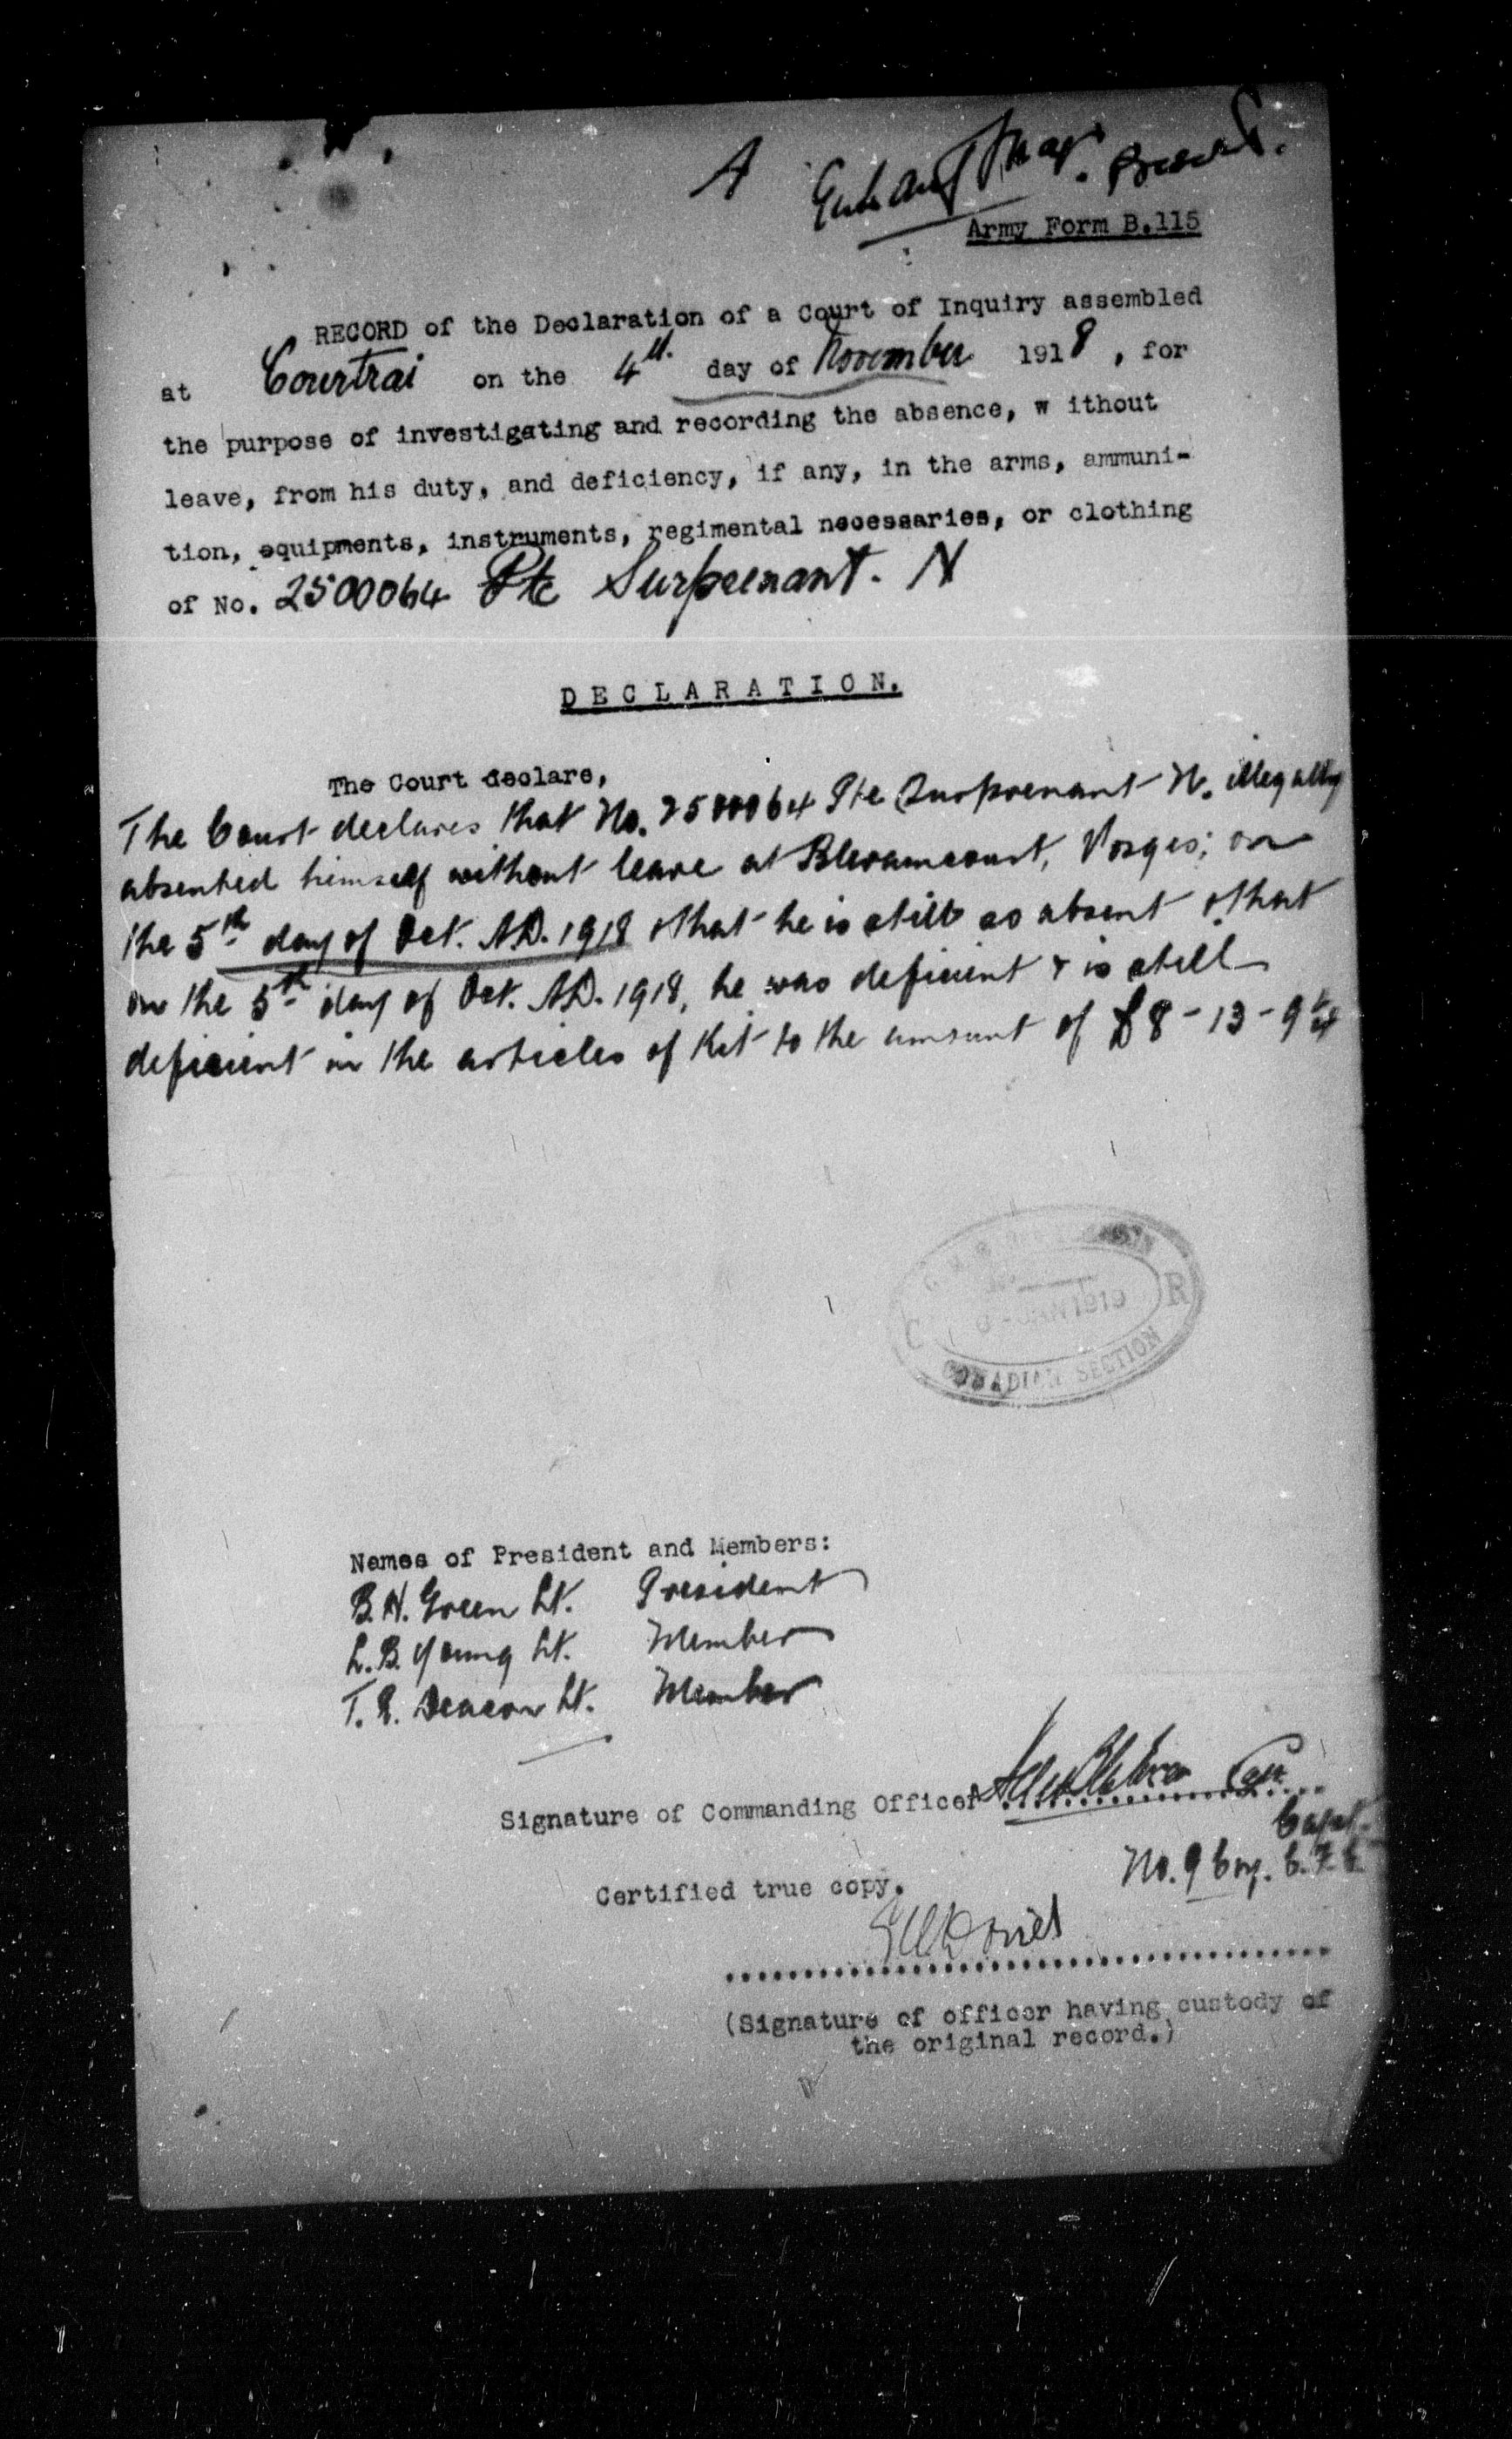 A
Army Form B.115
RECORD of the Declaration of a Court of Inquiry assembled
at Courtrai on the 4th. day of November 1918, for
the purpose of investigating and recording the absence, w ithout
leave, from his duty, and deficiency, if any, in the arms, ammuni-
tion, equipments, instruments, regimental necessaries, or clothing
of No. 2500064 Pte Surprenant. N
DECLARATION.
The Court declare,
The Court declares that No. 2500064 Pte Surprenant N. illegally
absented himself without leave at Vosges; on
the 5th day of Oct. A.D. 1918 & that he is still so absent & that
on the 5th day of Oct. A.D. 1918, he was deficient & is still
deficient in the articles of Kit to the amount of £8-13-9¼
JAN 1919
C R
CANADIAN SECTION
Names of President and Members:
B.H. Green Lt. President
L.B. Young Lt. Member
T.E. Deacon Lt. Member
Signature of Commanding Officer
Capt.
No. 9 Coy. C.F.C.
Certified true copy.
(Signature of officer having custody of
the original record.)